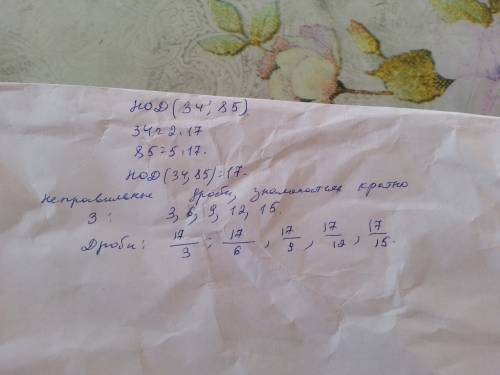 НОД (34; 85)
34=2·17
85=5·17.
НОД (34,85)=17.
Неправильные дроби, знаменатель кратно
3: 3, 6, 9, 12, 15.
Дроби: 17/3; 17/6, 17/9, 17/12, 17/15.